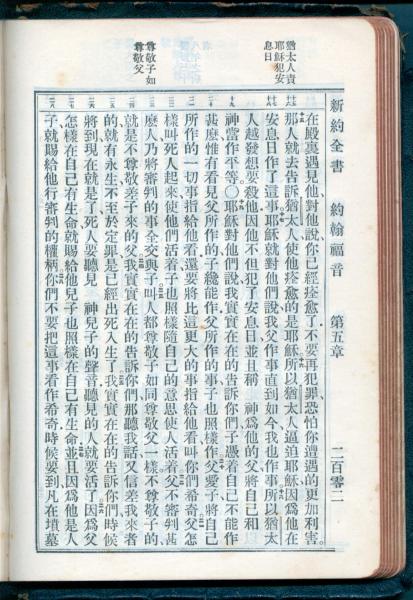 新約全書 約翰福音 第五章 二百零二
猶太人責
耶穌犯安
息日
尊敬子如
尊敬父
在殿裏遇見他對他說你已經痊愈了不要再犯罪恐怕你遭遇的更加利害
那人就去告訴猶太人使他痊愈的是耶穌所以猶太人逼迫耶穌因為他在
安息日作了這事耶穌就對他們說我父作事直到如今我也作事所以猶太
人越發想要殺他因他不但犯了安息日並且稱 神為他的父將自己和
神當作平等〇耶穌對他們說我實實在在的告訴你們子憑着自己不能作
甚麼惟有看見父所作的子纔能作父所作的事子也照樣作父愛子將自己
所作的一切事指給他看還要將比這更大的事指給他看叫你們希奇父怎
樣叫死人起來使他們活着子也照樣隨自己的意思使人活着父不審判甚
麼人乃將審判的事全交與子叫人都尊敬子如同尊敬父一樣不尊敬子的
就是不尊敬差子來的父我實實在在的告訴你們那聽我話又信差我來者
的就有永生不至於定罪是已經出死入生了我實實在在的告訴你們時候
將到現在就是了死人要聽見 神兒子的聲音聽見的人就要活了因為父
怎樣在自己有生命就賜給他兒子也照樣在自己有生命並且因為他是人
子就賜給他行審判的權柄你們不要把這事看作希奇時候要到凡在墳墓